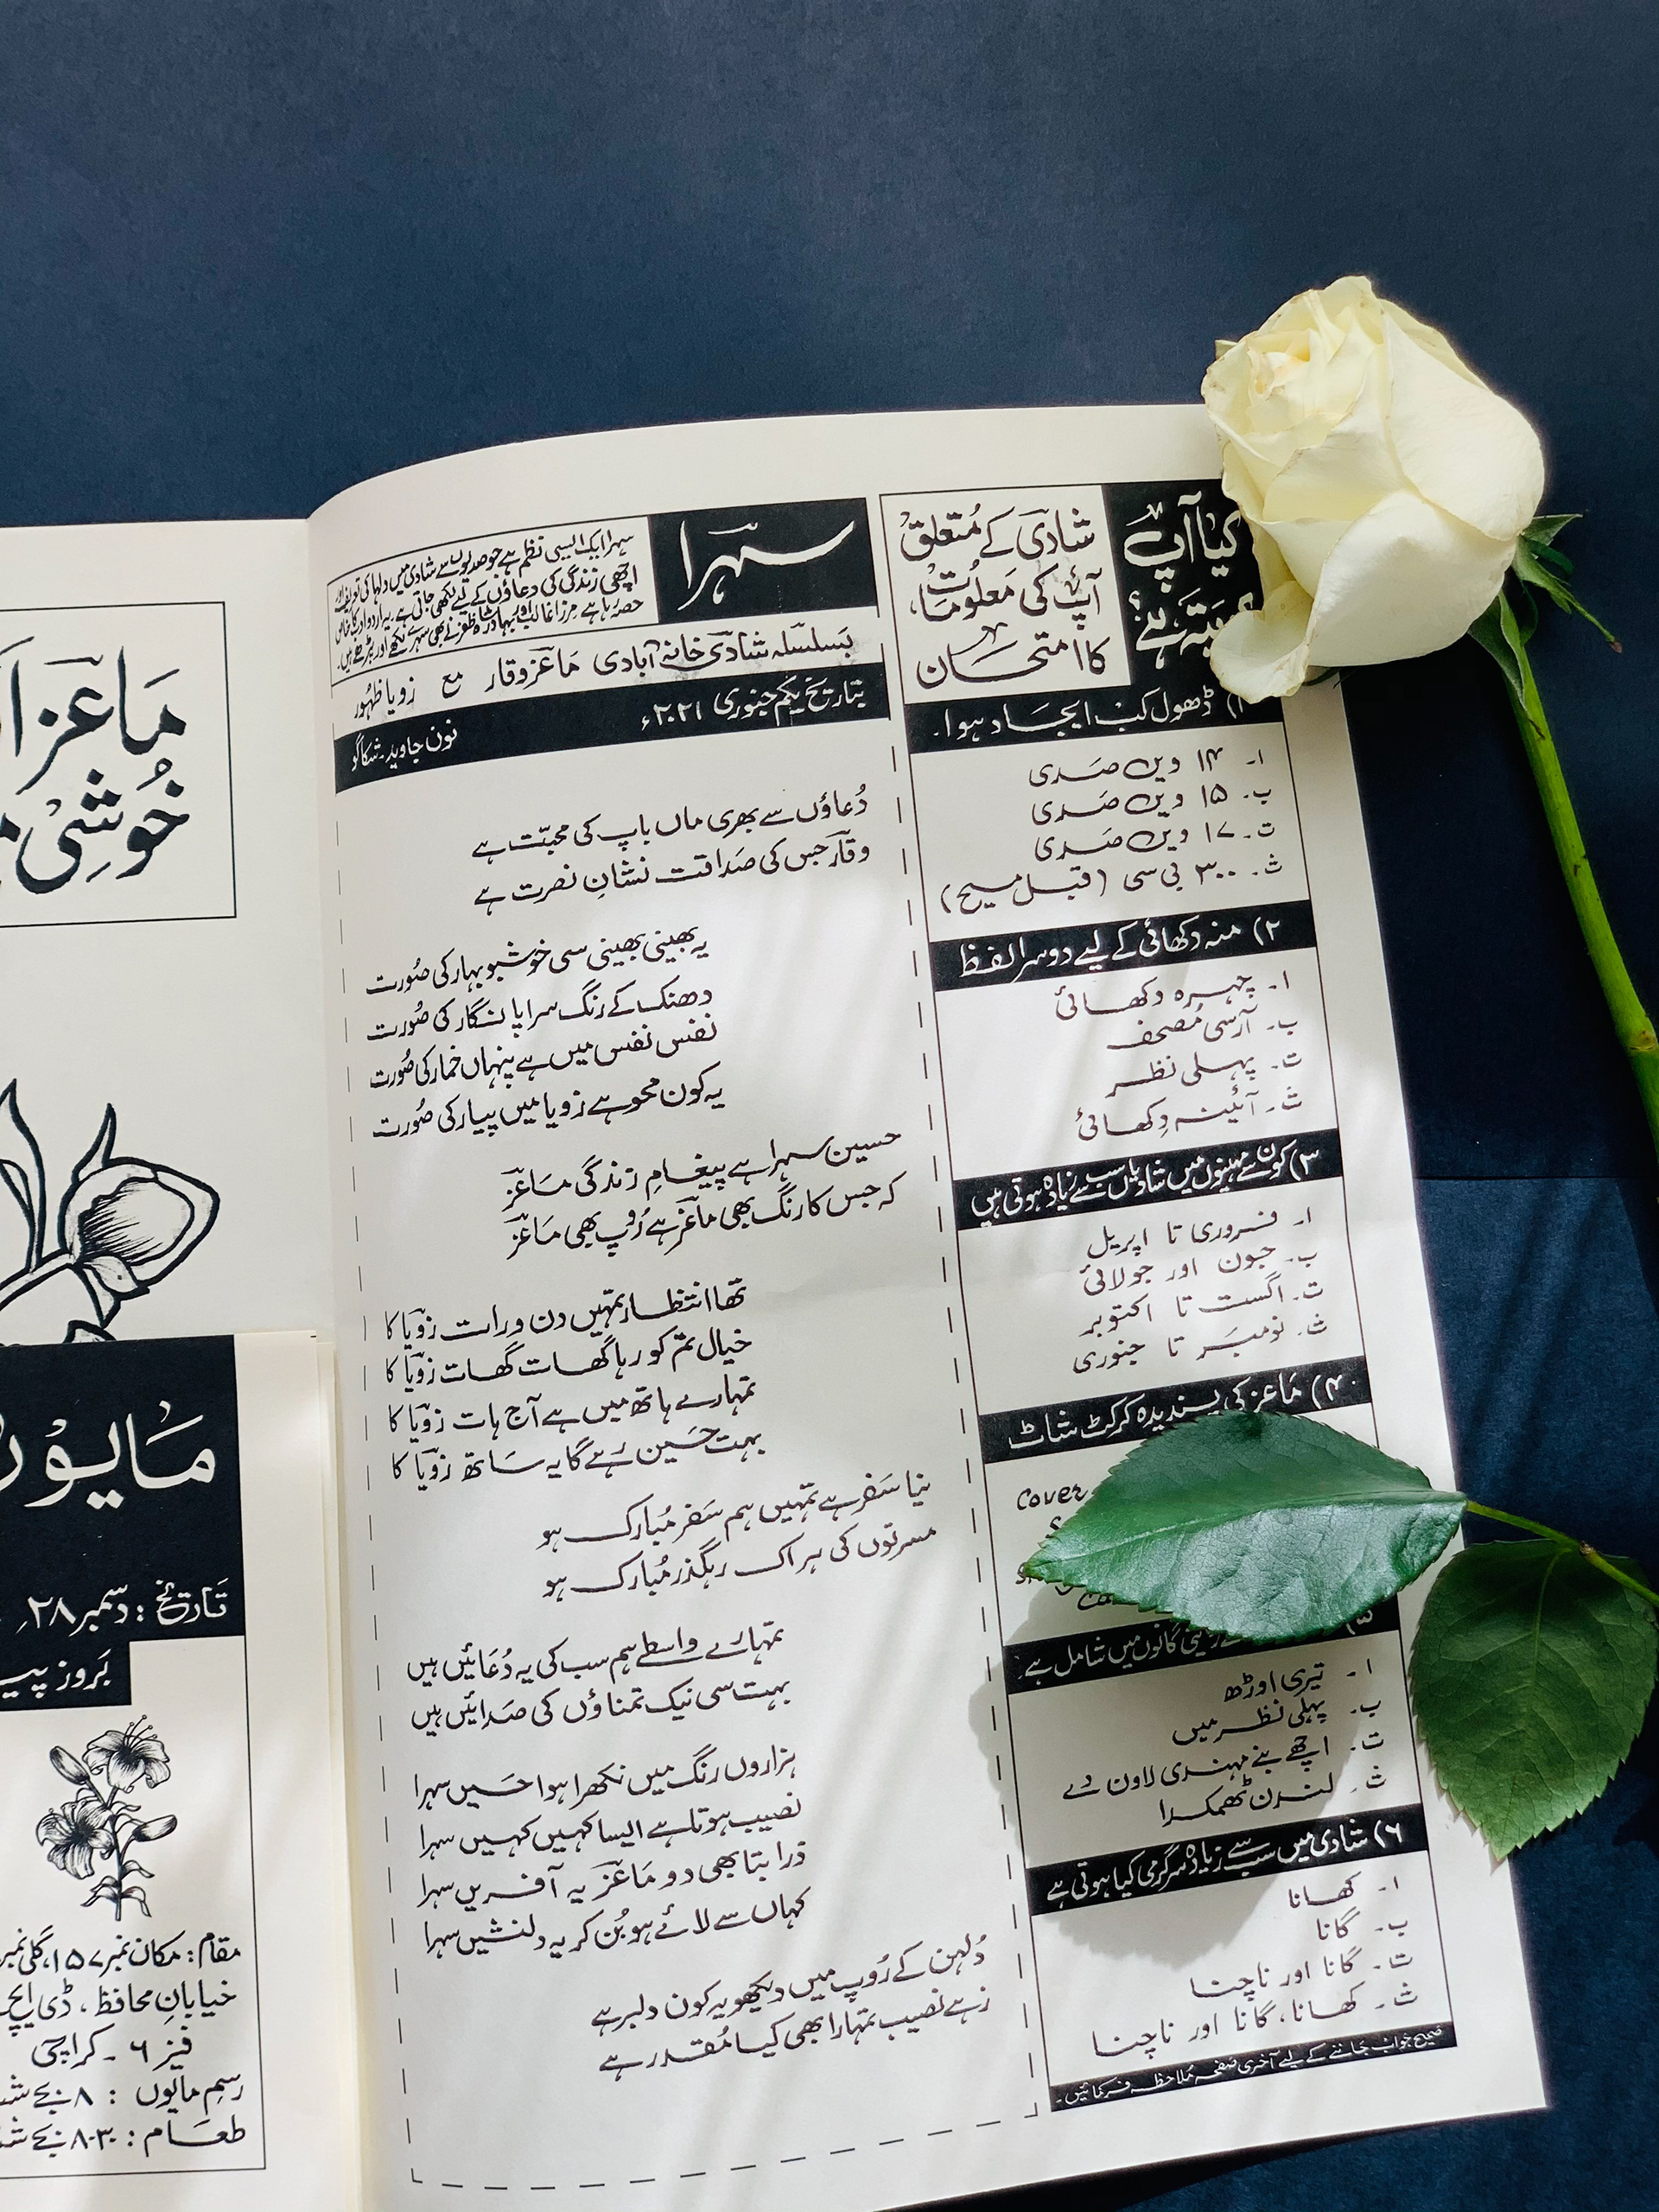 کیا آپ
کو پتہ ہے؟
شادی کے مُتعلق
آپ کی مَعلومات
کا امتحان
۱) ڈھول کب ایجاد ہوا۔
ا۔ ۱۴ ویں صَدی
ب۔ ۱۵ ویں صَدی
ت۔ ۱۷ ویں صَدی
ث۔ ۳۰۰ بی سی (قبل مسیح)
۲) منہ دکھائی کے لیے دوسرا لفظ
ا۔ چہرہ دکھائی
ب۔ آرسی مُصحف
ت۔ پہلی نظر
ث۔ آئینہ دِکھائی
۳) کون سے مہینوں میں شادیاں سب سے زیادہ ہوتی ہیں
ا۔ فروری تا اپریل
ب۔ جون اور جولائی
ت۔ اگست تا اکتوبر
ث۔ نومبَر تا جنوری
۴) مَاعز کی پسندیدہ کرکٹ شاٹ
Cover
گانوں میں شامل ہے۔
ا۔ تیری اوڑھ
ب۔ پہلی نظر میں
ت۔ اچھے بنے مہندی لاون دے
ث۔ لندن ٹھمکدا
۶) شادی میں سب سے زیادہ سرگرمی کیا ہوتی ہے
ا۔ کھانا
ب۔ گانا
ت۔ گانا اور ناچنا
ث۔ کھانا، گانا اور ناچنا
صحیح جواب جاننے کے لیے آخری صفحہ مُلاحظہ فرمائیں۔
سہرا
سہرا ایک ایسی نظم ہے جو صدیوں سے شادی میں دلہا کی تعریف اور
اچھی زندگی کی دعاؤں کے لیے لکھی جاتی ہے۔ یہ اردو ادب کا خاص
حصہ رہا ہے مرزا غالب اور بہادر شاہ ظفر نے بھی سہرے لکھے اور پڑھے ہیں۔
بَسلسلہ شادی خانہ آبادی مَاعز وقار مع زویا ظہُور
بتاریخ یکم جنوری ۲۰۲۱ء
نون جاوید۔ شکاگو
دُعاؤں سے بھری ماں باپ کی محبّت ہے
وقار جس کی صَداقت نشانِ نصرت ہے
یہ بھینی بھینی سی خوشبو بہار کی صُورت
دھنک کے رنگ سراپا نگار کی صُورت
نفس نفس میں ہے پنہاں خمار کی صُورت
یہ کون محو ہے زویا میں پیار کی صُورت
حسین سہرا ہے پیغامِ زندگی مَاعز
کہ جس کا رنگ بھی ماعز ہے رُوپ بھی مَاعز
تھا انتظار تمہیں دن و رات زویا کا
خیال تم کو رہا گھات گھات زویا کا
تمہارے ہاتھ میں ہے آج ہات زویا کا
بہت حَسین رہے گا یہ ساتھ زویا کا
نیا سَفر ہے تمہیں ہم سَفر مُبارک ہو
مسرتوں کی ہر اک رہگذر مُبارک ہو
تمہارے واسطے ہم سب کی یہ دُعَائیں ہیں
بہت سی نیک تمناؤں کی صَدائیں ہیں
ہزاروں رنگ میں نکھرا ہوا حَسیں سہرا
نصیب ہوتا ہے ایسا کہیں کہیں سہرا
ذرا بتا بھی دو مَاعز یہ آفریں سہرا
کہاں سے لائے ہو بُن کر یہ دلنشیں سہرا
دُلہن کے رُوپ میں دیکھو یہ کون دلبر ہے
زہے نصیب تمہارا بھی کیا مُقدر ہے
مَاعز
خُوشی
مَایوں
تَاریخ: دسمبر ۲۸،
بَروز پیر
مقام: مکان نمبر ۱۵۷، گلی نمبر
خیابانِ محافظ، ڈی ایچ
فیز ۶ ۔ کراچی
رسمِ مایُوں : ۸ بجے
طعَام : ۸:۳۰ بجے